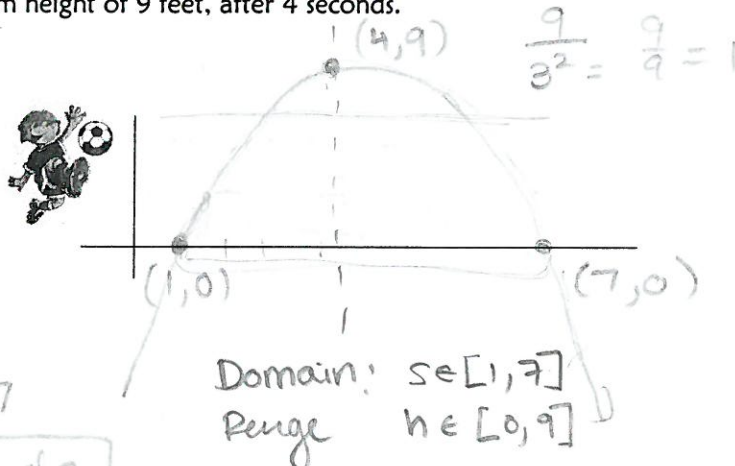 m height of 9 feet, after 4 seconds.
(4,9)
9/3² = 9/9 = 1
(1,0)
(7,0)
7
Domain: s∈[1,7]
Renge h∈[0,9]